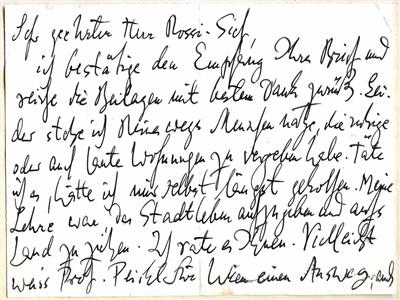 Sehr geehrter Herr Rossi-Sief,
ich bestätige den Empfang Ihres Briefs und
reiche die Beilagen mit bestem Dank zurück. Lei-
der stehe ich keineswegs Menschen nahe, die ruhige
oder auch laute Wohnungen zu vergeben habe. Täte
ich es, hätte ich mir selbst längst geholfen. Meine
Lehre war, das Stadtleben aufzugeben und aufs
Land zu ziehen. Ich rate es Ihnen. Vielleicht
weiss Prof. für Wien einen Ausweg, und